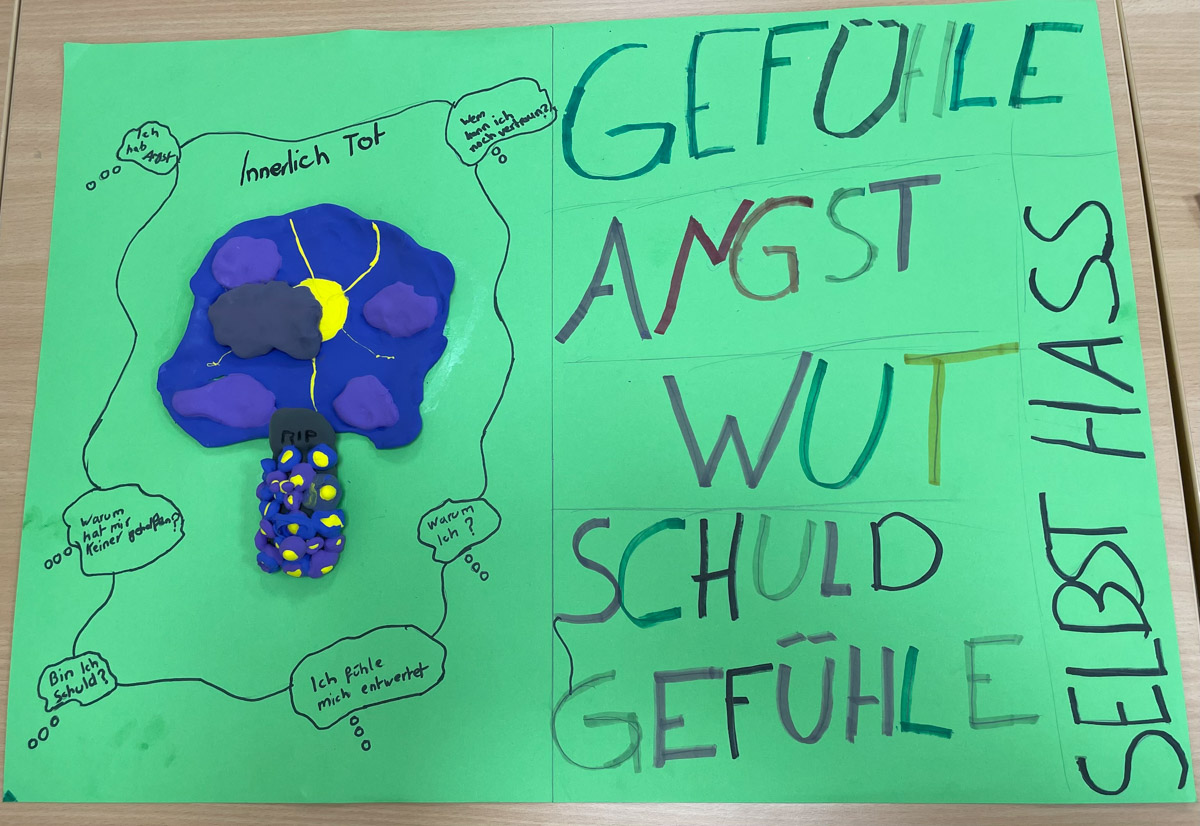 Ich
hab
Angst
Innerlich Tot
Wem
kann ich
noch vertraun?
RIP
Warum
hat mir
Keiner geholfen?
Warum
Ich ?
Bin Ich
Schuld?
Ich fühle
mich entwertet
GEFÜHLE
ANGST
WUT
SCHULD
GEFÜHLE
SELBST HASS